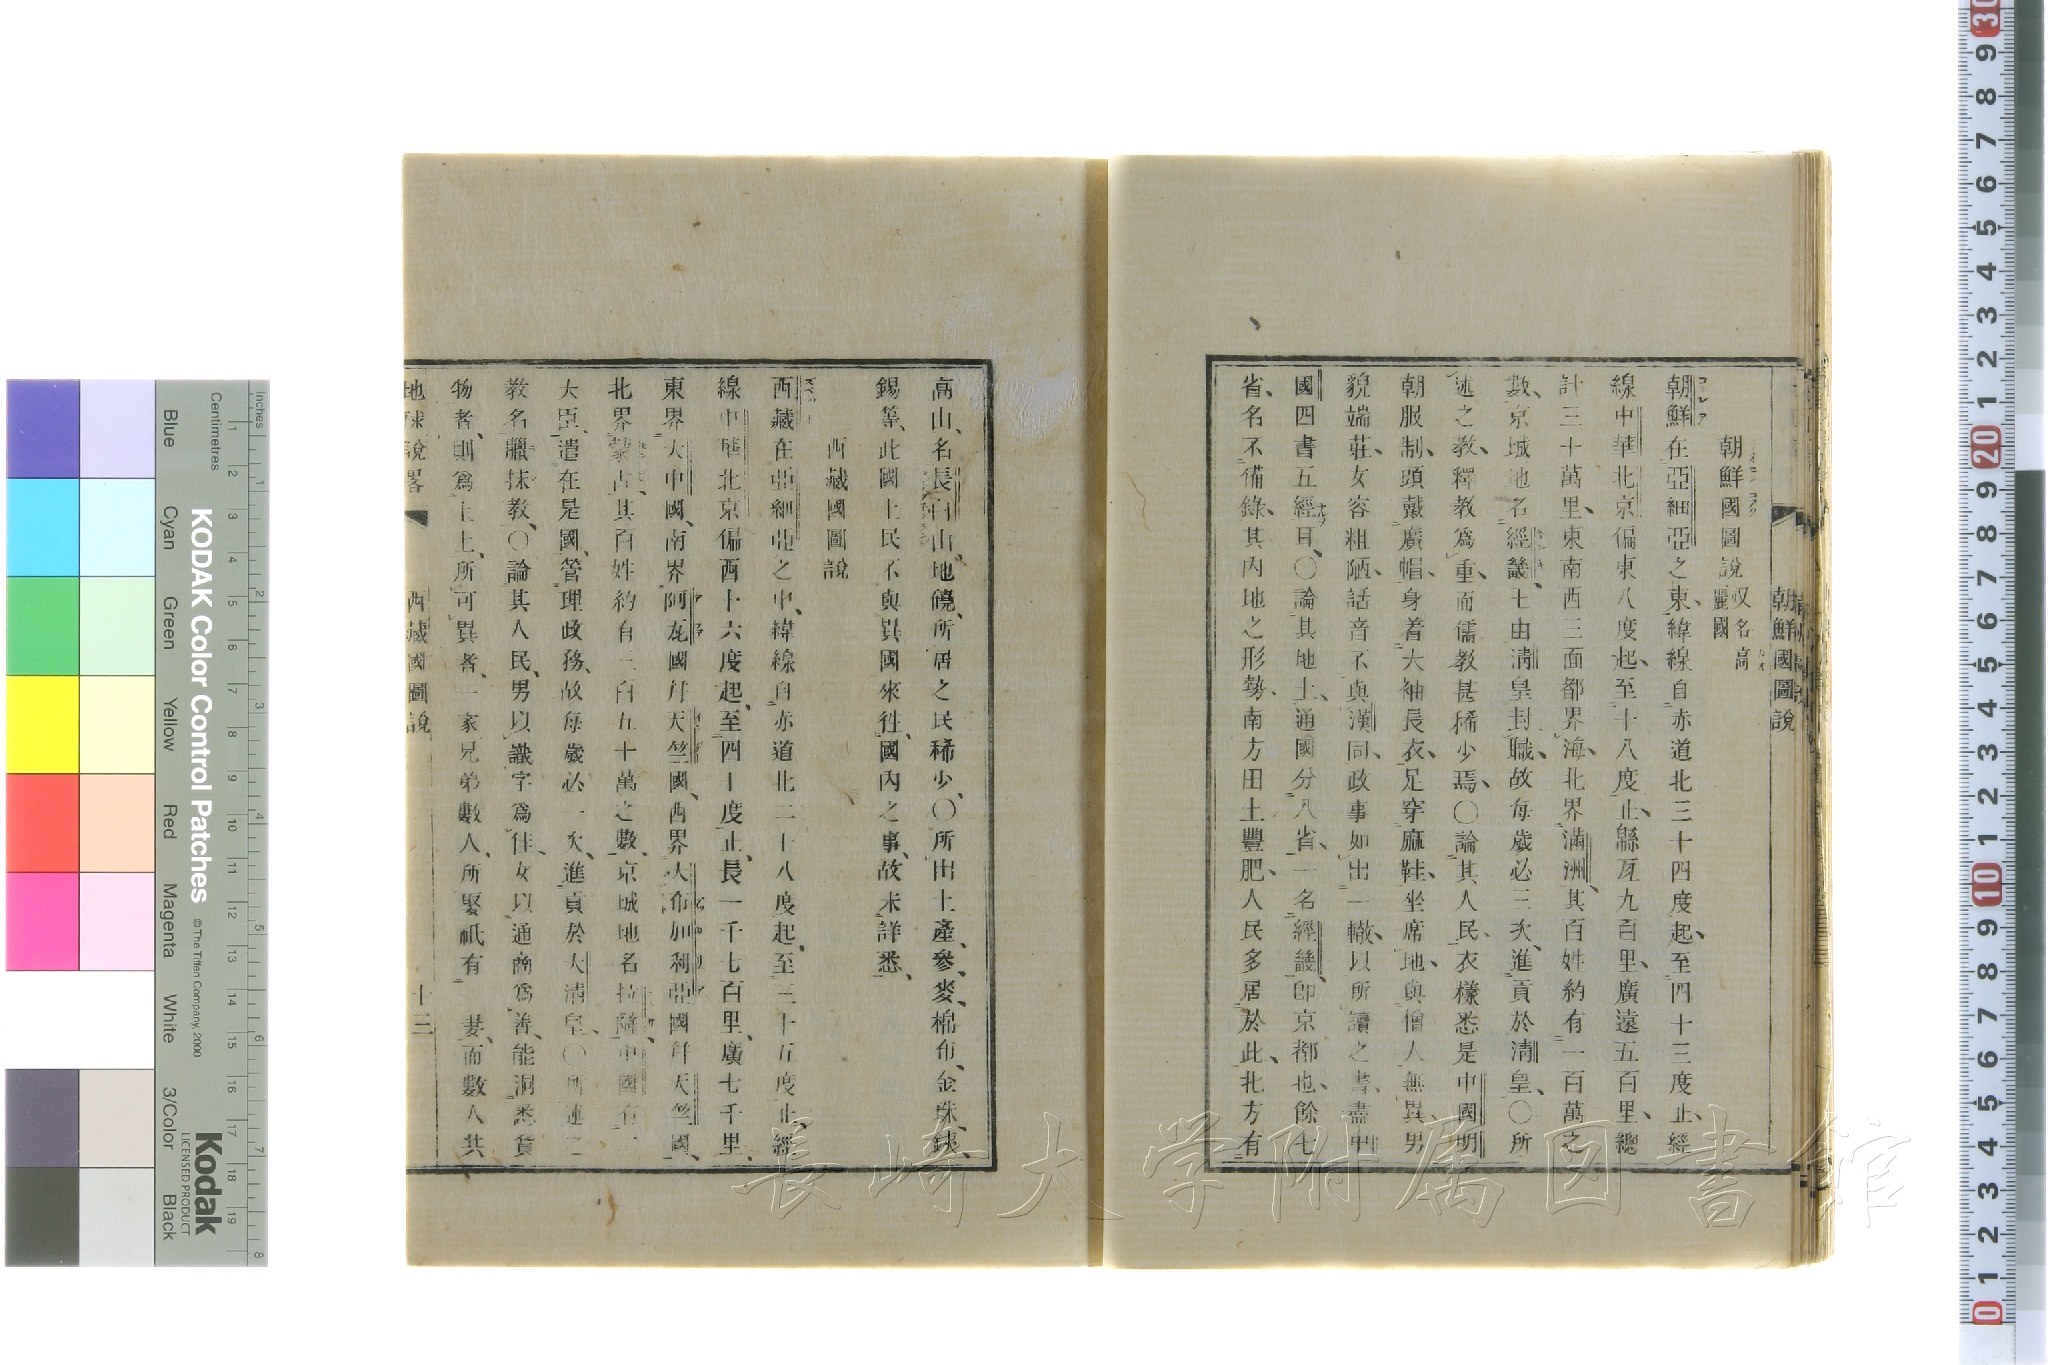 朝鮮國圖說
朝鮮國圖說 又名高麗國
朝鮮在亞細亞之東、緯線自赤道北三十四度起、至四十三度止、經
線中華北京偏東八度起、至十八度止、縣亙九百里、廣遠五百里、總
計三十萬里、東南西三面都界海、北界滿洲、其百姓約有一百萬之
數、京城地名經畿、七由淸皇封職、故每歲必三次進貢於淸皇、〇所
述之教、釋教爲重、而儒教甚稀少焉、〇論其人民、衣樣悉是中國明
朝服制、頭戴廣帽、身着大袖長衣、足穿麻鞋、坐席地、與僧人無異、男
貌端莊、女容粗陋、話音不與漢同、政事如出一轍、以所讀之書、盡中
國四書五經耳、〇論其地土、通國分八省、一名經畿、卽京都也、餘七
省、名不備錄、其內地之形勢、南方田土豐肥、人民多居於此、北方有
高山、名長白山、地磽、所居之民稀少、〇所出土產、參、麥、棉布、金、珠、銕、
錫等、此國土民不與異國來徃、國內之事、故未詳悉、
西藏國圖說
西藏在亞細亞之中、緯線自赤道北二十八度起、至三十五度止、經
線中華北京偏西十六度起、至四十度止、長一千七百里、廣七千里、
東界大中國、南界阿瓦國幷天竺國、西界大布加利亞國幷天竺國、
北界蒙古、其百姓約自三百五十萬之數、京城地名拉薩、中國有一
大臣、遣在是國、管理政務、故每歲必一次、進貢於大淸皇、〇所述之
教名臘抹教、〇論其人民、男以識字爲佳、女以通商爲善、能洞悉貨
物者、則爲上上、所可異者、一家兄弟數人、所娶祇有一妻、而數人共
地球說畧 西藏國圖說 十三
KODAK Color Control Patches
© The Tiffen Company, 2000
Kodak
LICENSED PRODUCT
Inches
Centimetres
Blue Cyan Green Yellow Red Magenta White 3/Color Black
長崎大学附属図書館